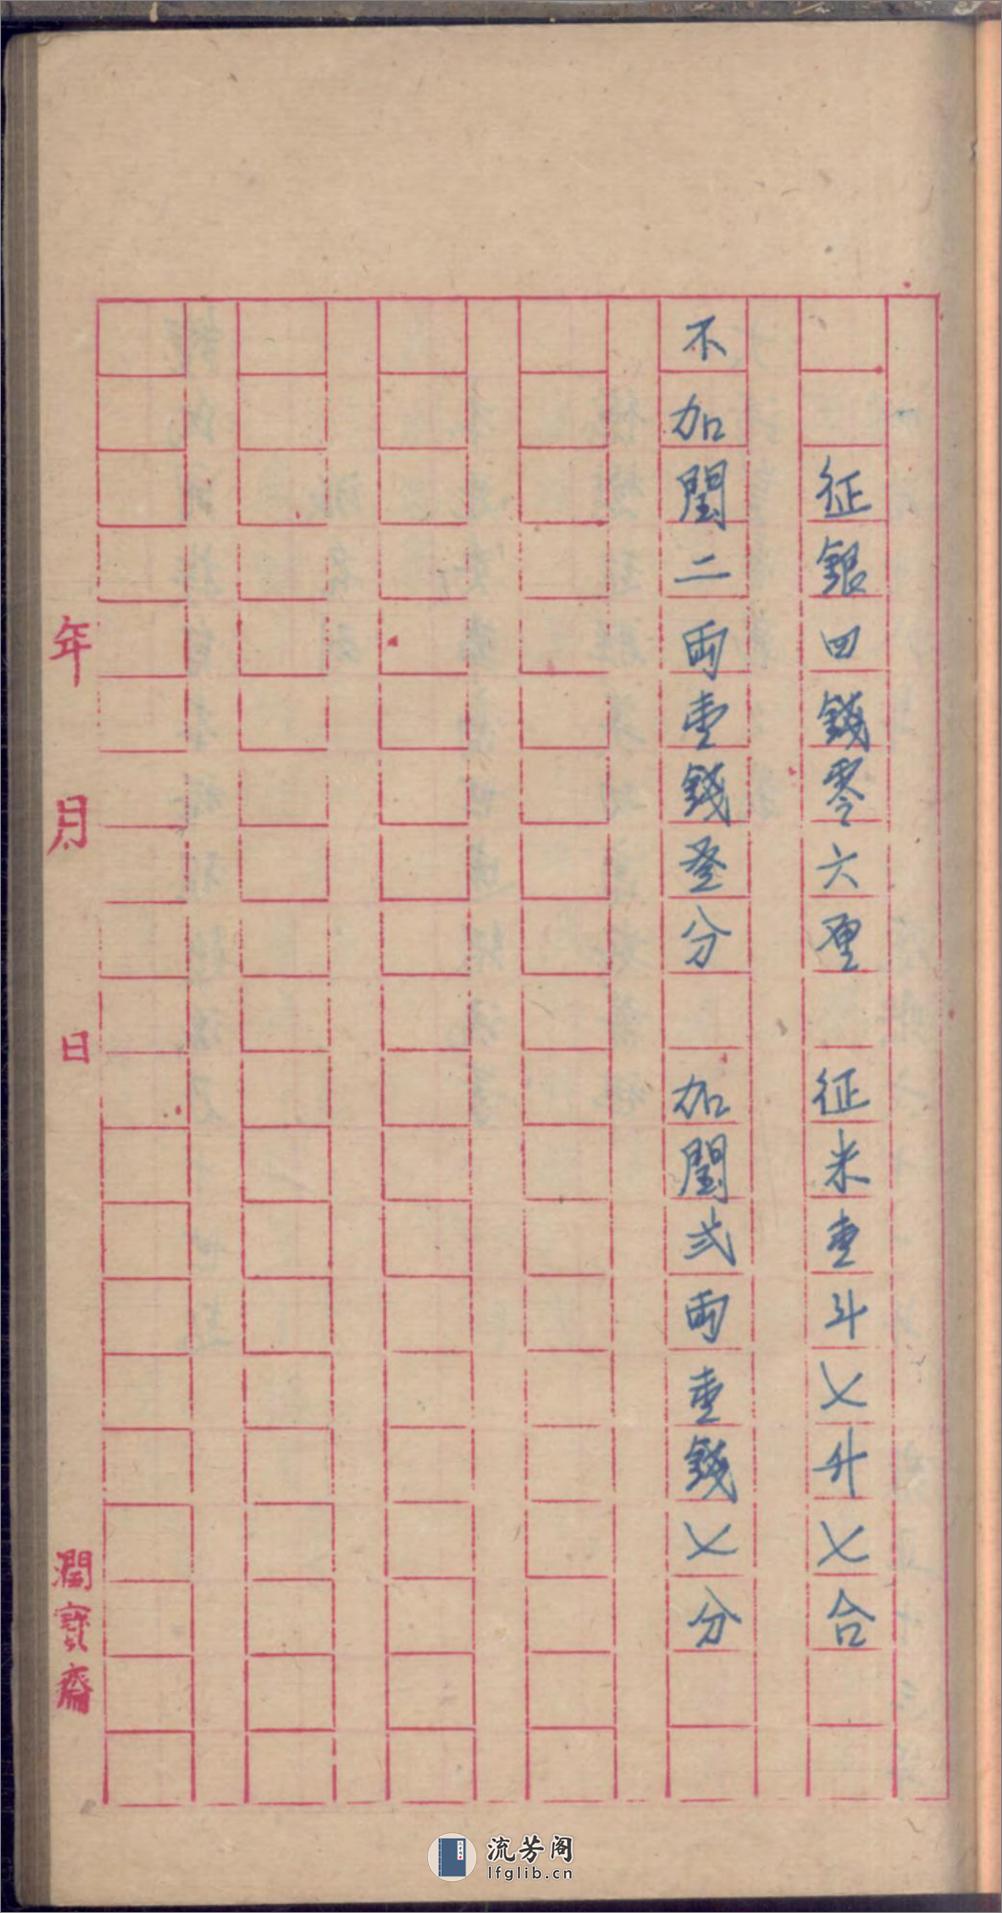 征銀四錢零六厘　征米壹斗七升七合
不加閏二両壹錢叁分　加閏弍両壹錢七分
年 月 日 潤寶齋
流芳阁
lfglib.cn